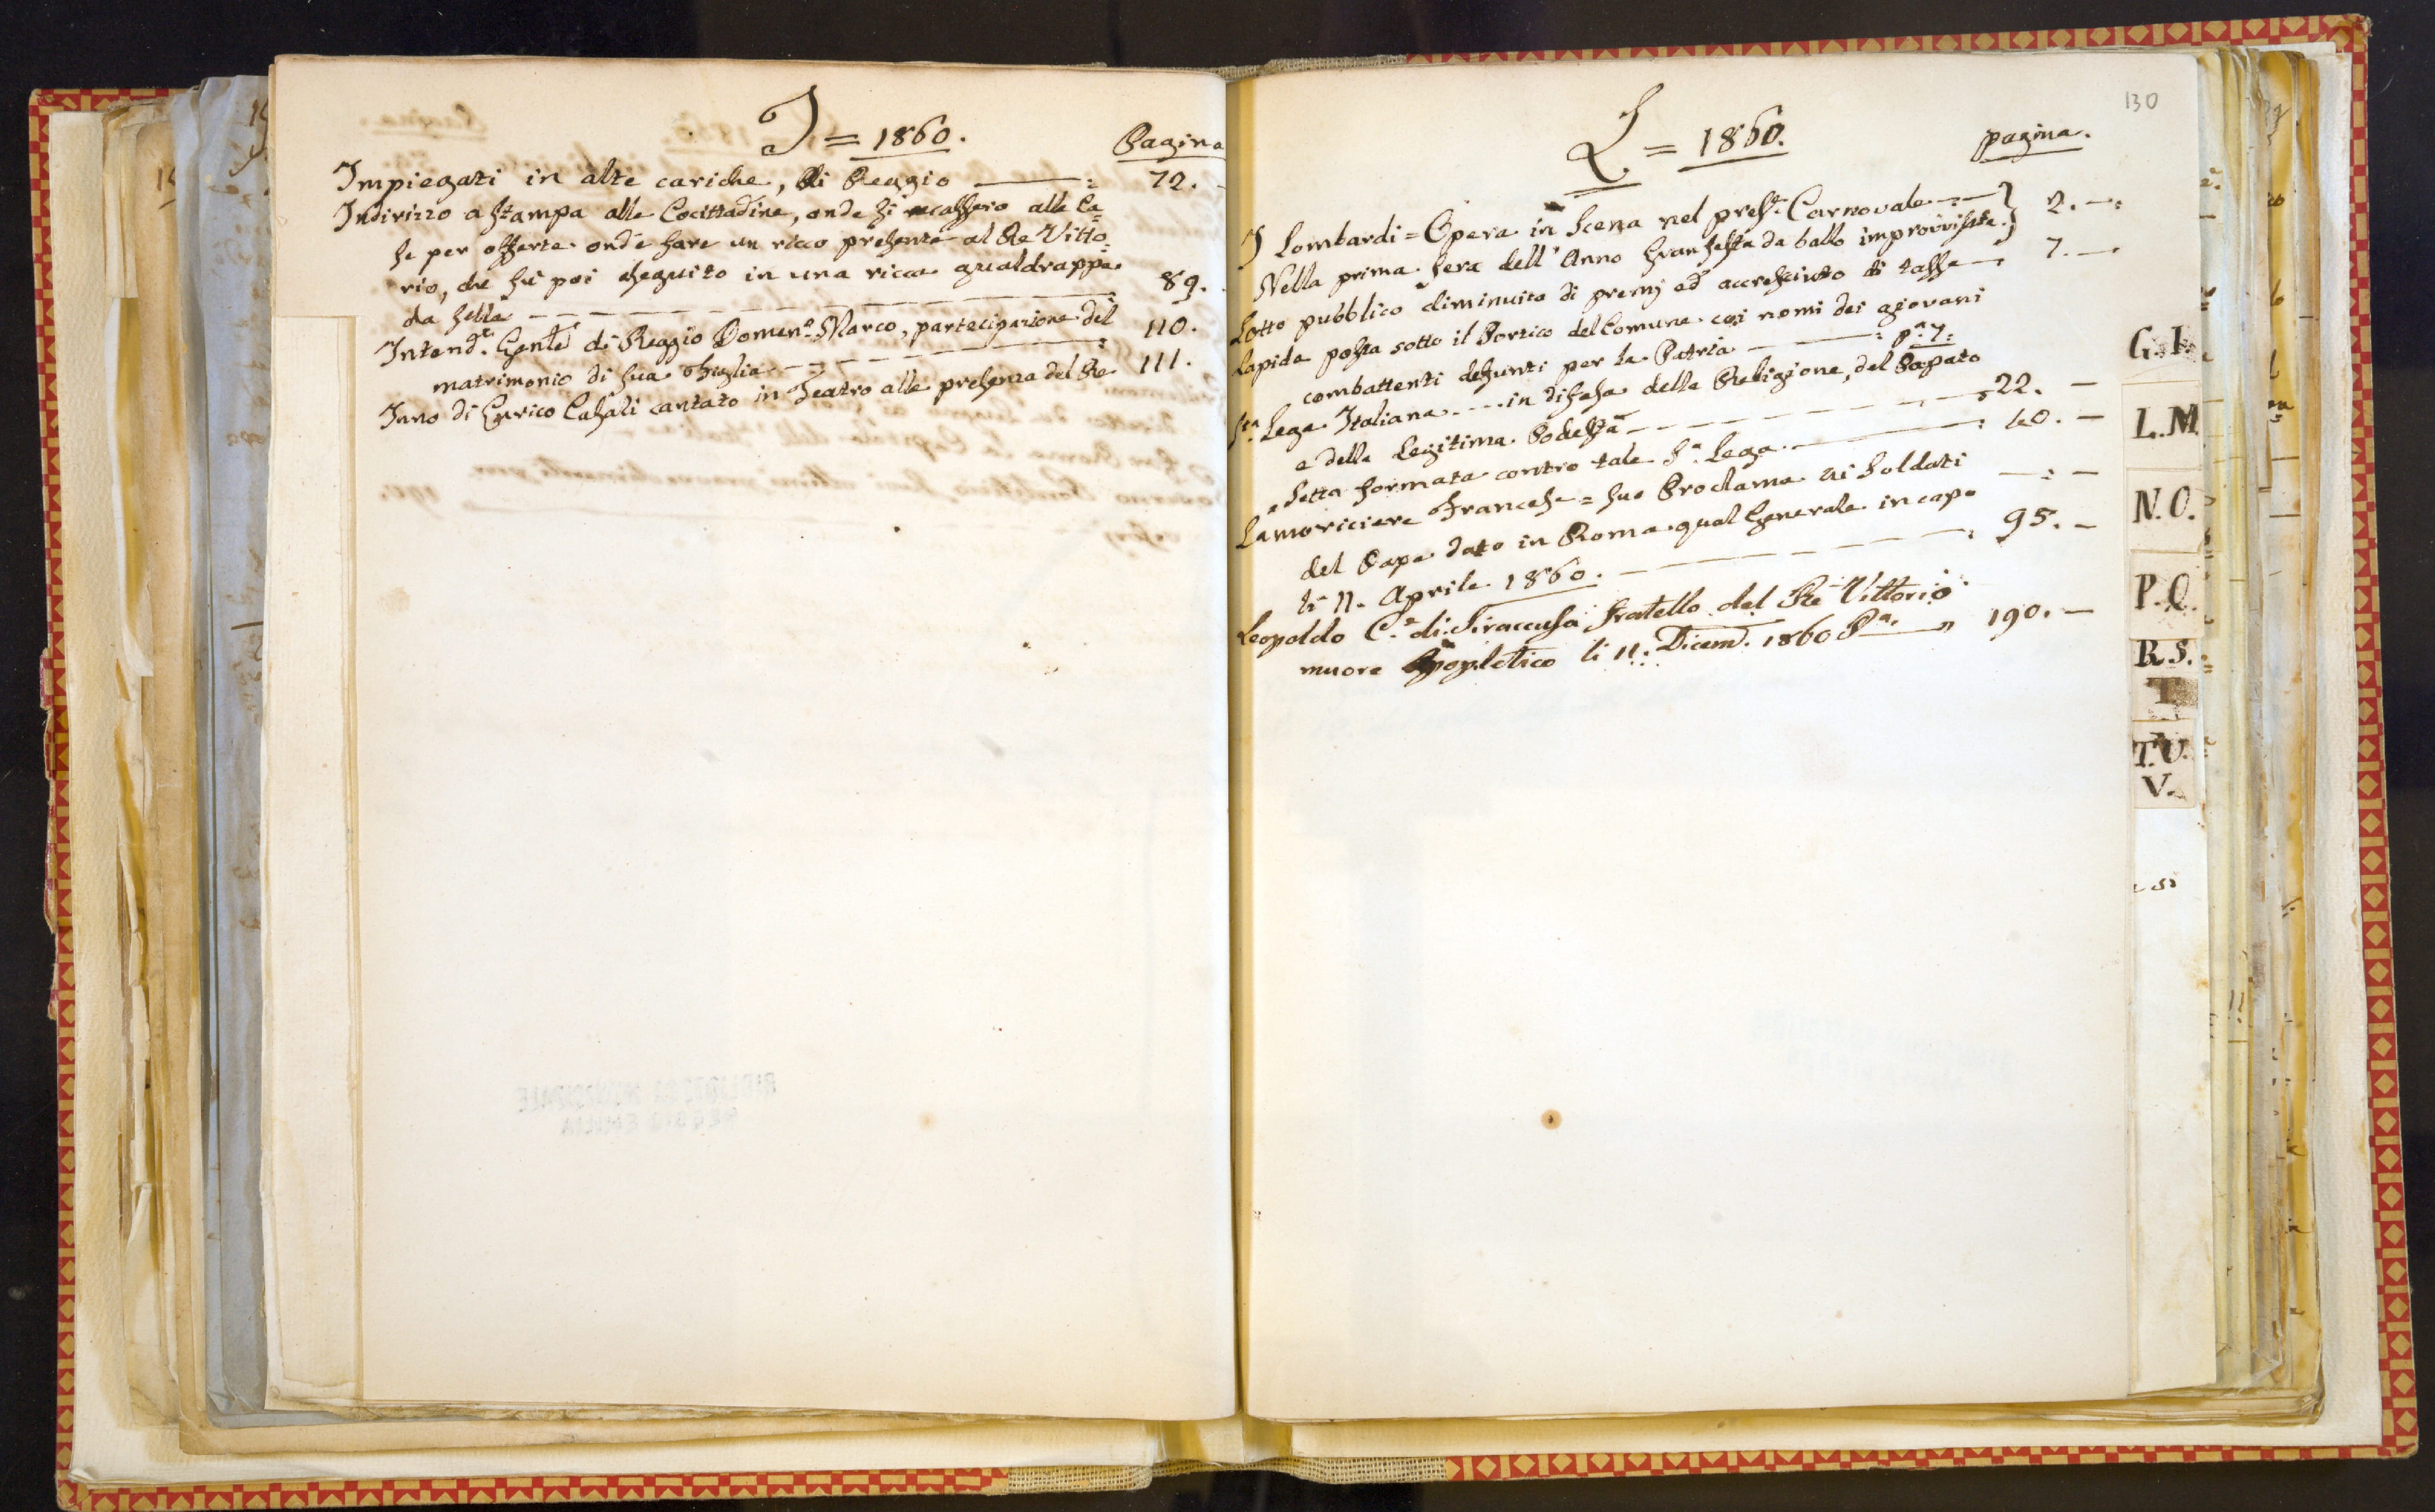 I = 1860.
Pagina
Impiegati in alte cariche, di Reggio ——: 72.
Indirizzo a stampa alle Cocittadine, onde si recassero alle Ca=
se per offerte onde fare un ricco presente al Re Vitto=
rio, che fù poi eseguito in una ricca gualdrappa
da sella — — — — — 89.
Intend.e Gen.le di Reggio Domen.o Marco, partecipazione del
matrimonio di sua Figlia — — — — : 110.
Inno di Enrico Casali cantato in Teatro alla presenza del Re 111.
130
L = 1860.
pagina.
I Lombardi = Opera in Scena nel pres.e Carnovale.—
Nella prima sera dell'Anno Gran festa da ballo improvvisata.} 2.—:
Lotto pubblico diminuito di premj ed accresciuto di tasse—: 7.—.
Lapide posta sotto il Portico del Comune coi nomi dei giovani
combattenti defunti per la Patria ———: p.a 7:
S.ta Lega Italiana.----in difesa della Religione, del Papato
e della Legitima Podestà — — — — — 22. —
Setta formata contro tale S.a Lega. ———: 40. —
Lamoriciere Francese = suo Proclama ai Soldati —: —
del Papa dato in Roma qual Generale in capo
li 11. Aprile 1860. — — — — —: 95. —
Leopoldo C.e di Siraccusa Fratello del Re Vittorio
muore Apopletico li 11: Dicem. 1860 P.a —„ 190. —
G.I.
L.M.
N.O.
P.Q.
R.S.
T.U.
V.
BIBLIOTECA MUNICIPALE
REGGIO EMILIA